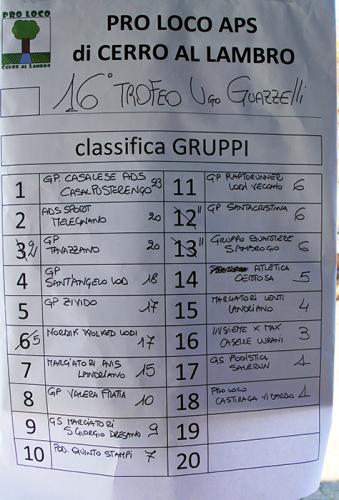 PRO LOCO
CERRO AL LAMBRO
PRO LOCO APS
di CERRO AL LAMBRO
16° TROFEO Ugo Guazzelli
classifica GRUPPI
1 GP. CASALESE ADS
CASALPUSTERENGO 93
2 ADS SPORT
MELEGNANO 20
3 2 GP
TAVAZZANO 20
4 GP
SANT'ANGELO LOD 18
5 GP ZIVIDO 17
6 5 NORDIK WOLKED LODI 17
7 MARCIATORI AVIS
LANDRIANO 15
8 GP VALERA FRATTA 10
9 GS MARCIATORI
S. GIORGIO DRESANO 9
10 POD. QUINTO STAMPI 7
11 GP RAPTORUNNER
LODI VECCHIO 6
12 11 GP SANTACRISTINA 6
13 11 GRUPPO
S. AMBROGIO 6
14 ATLETICA
CERTOSA 5
15 MARCIATORI LENTI
LANDRIANO 4
16 INSIEME X MAX
CASELLE LURANI 3
17 GS PODISTICA
1
18 PRO LOCO
CASTIRAGA VIDARDO 1
19
20